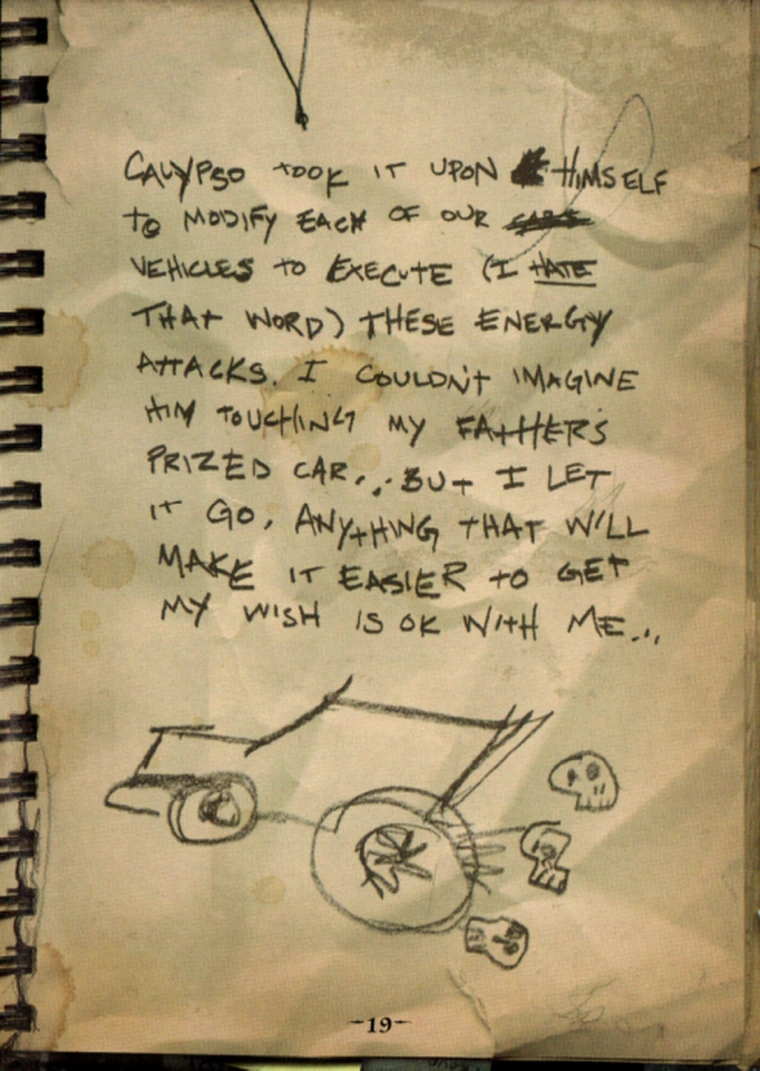 CALYPSO TOOK IT UPON HIMSELF
TO MODIFY EACH OF OUR CARS
VEHICLES TO EXECUTE (I HATE
THAT WORD) THESE ENERGY
ATTACKS. I COULDN'T IMAGINE
HIM TOUCHING MY FATHERS
PRIZED CAR... BUT I LET
IT GO, ANYTHING THAT WILL
MAKE IT EASIER TO GET
MY WISH IS OK WITH ME...
-19-